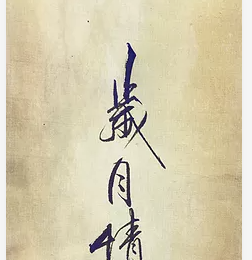 歲月情